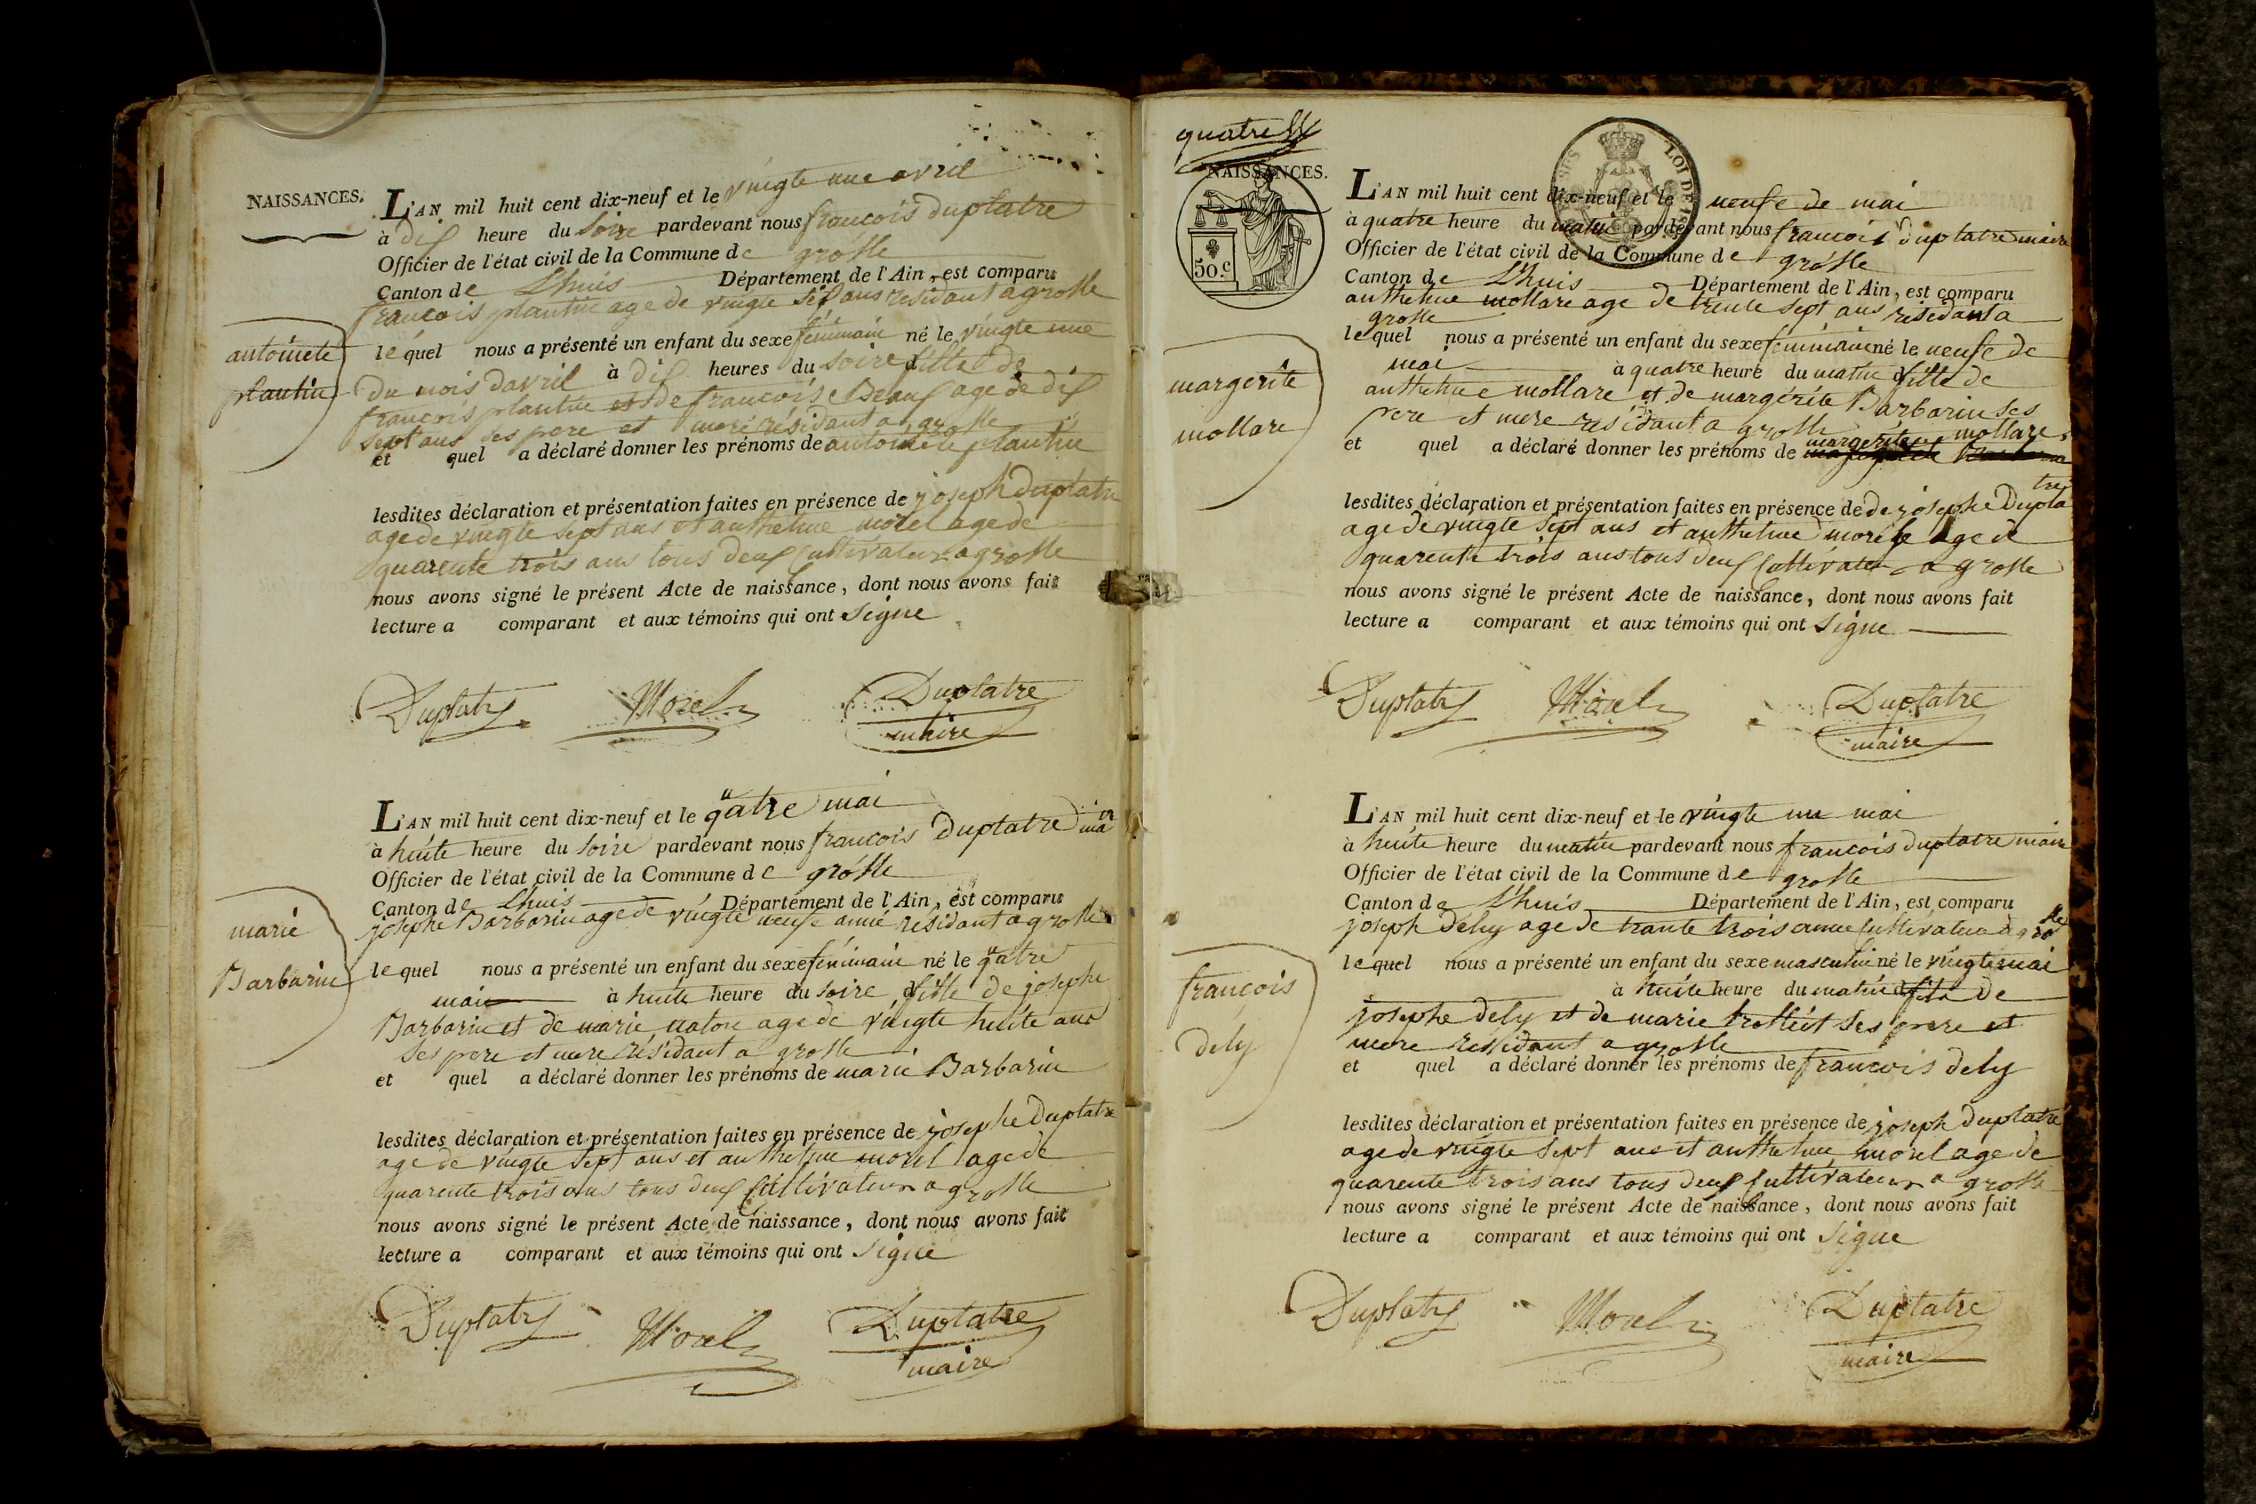 NAISSANCES.
L'AN mil huit cent dix-neuf et le vingte une avril
à dix heure du soire pardevant nous francois duplatre
Officier de l'état civil de la Commune de grosle
Canton de Lhuis Département de l'Ain, est comparu
francois plantin age de vingte six ans residant a grosle
le quel nous a présenté un enfant du sexe féminain né le vingte une
du mois davril à dix heures du soire fille de
francois plantin et de francoise Beauf age de dix
sept ans ses pere et mere résidant a grosle
et quel a déclaré donner les prénoms de antoinete plantin
antoinete
plantin
lesdites déclaration et présentation faites en présence de joseph duplatre
age de vingte sept ans et anthelme morel age de
quarente trois ans tous deux cultivateur a grosle
nous avons signé le présent Acte de naissance, dont nous avons fait
lecture a comparant et aux témoins qui ont signe
Duplatre Morel Duplatre
maire
L'AN mil huit cent dix-neuf et le quatre mai
à huite heure du soire pardevant nous francois duplatre maire
Officier de l'état civil de la Commune de grosle
Canton de Lhuis Département de l'Ain, est comparu
josephe Barbarin age de vingte neufe anné residant a grosle
le quel nous a présenté un enfant du sexe féminain né le quatre
mai à huite heure du soire fille de josephe
Barbarin et de marie age de vingte huite ans
ses pere et mere résidant a grosle
et quel a déclaré donner les prénoms de marie Barbarin
marie
Barbarin
lesdites déclaration et présentation faites en présence de josephe duplatre
age de vingte sept ans et anthelme morel age de
quarente trois ans tous deux cultivateur a grosle
nous avons signé le présent Acte de naissance, dont nous avons fait
lecture a comparant et aux témoins qui ont signe
Duplatre Morel Duplatre
maire
quatre
NAISSANCES.
50.c
LOI DE
L'AN mil huit cent dix-neuf et le neufe de mai
à quatre heure du matin pardevant nous francois duplatre maire
Officier de l'état civil de la Commune de grosle
Canton de Lhuis Département de l'Ain, est comparu
anthelme mollare age de trente sept ans residant a
grosle
le quel nous a présenté un enfant du sexe féminain né le neufe de
mai à quatre heure du matin fille de
anthelme mollare et de margérite Barbarin ses
pere et mere résidant a grosle
et quel a déclaré donner les prénoms de margerite mollare
margerite
mollare
lesdites déclaration et présentation faites en présence de de josephe Duplatre
age de vingte sept ans et anthelme morele age de
quarente trois ans tous deux cultivateur a grosle
nous avons signé le présent Acte de naissance, dont nous avons fait
lecture a comparant et aux témoins qui ont signe
Duplatre Morel Duplatre
maire
L'AN mil huit cent dix-neuf et le vingte un mai
à huite heure du matin pardevant nous francois duplatre maire
Officier de l'état civil de la Commune de grosle
Canton de Lhuis Département de l'Ain, est comparu
joseph dely age de trante trois anné cultivateur a grosle
le quel nous a présenté un enfant du sexe masculin né le vingte mai
à huite heure du matin fils de
josephe dely et de marie ses pere et
mere residant a grosle
et quel a déclaré donner les prénoms de francois dely
françois
dely
lesdites déclaration et présentation faites en présence de joseph duplatre
age de vingte sept ans et anthelme morel age de
quarente trois ans tous deux cultivateur a grosle
nous avons signé le présent Acte de naissance, dont nous avons fait
lecture a comparant et aux témoins qui ont signe
Duplatre Morel Duplatre
maire